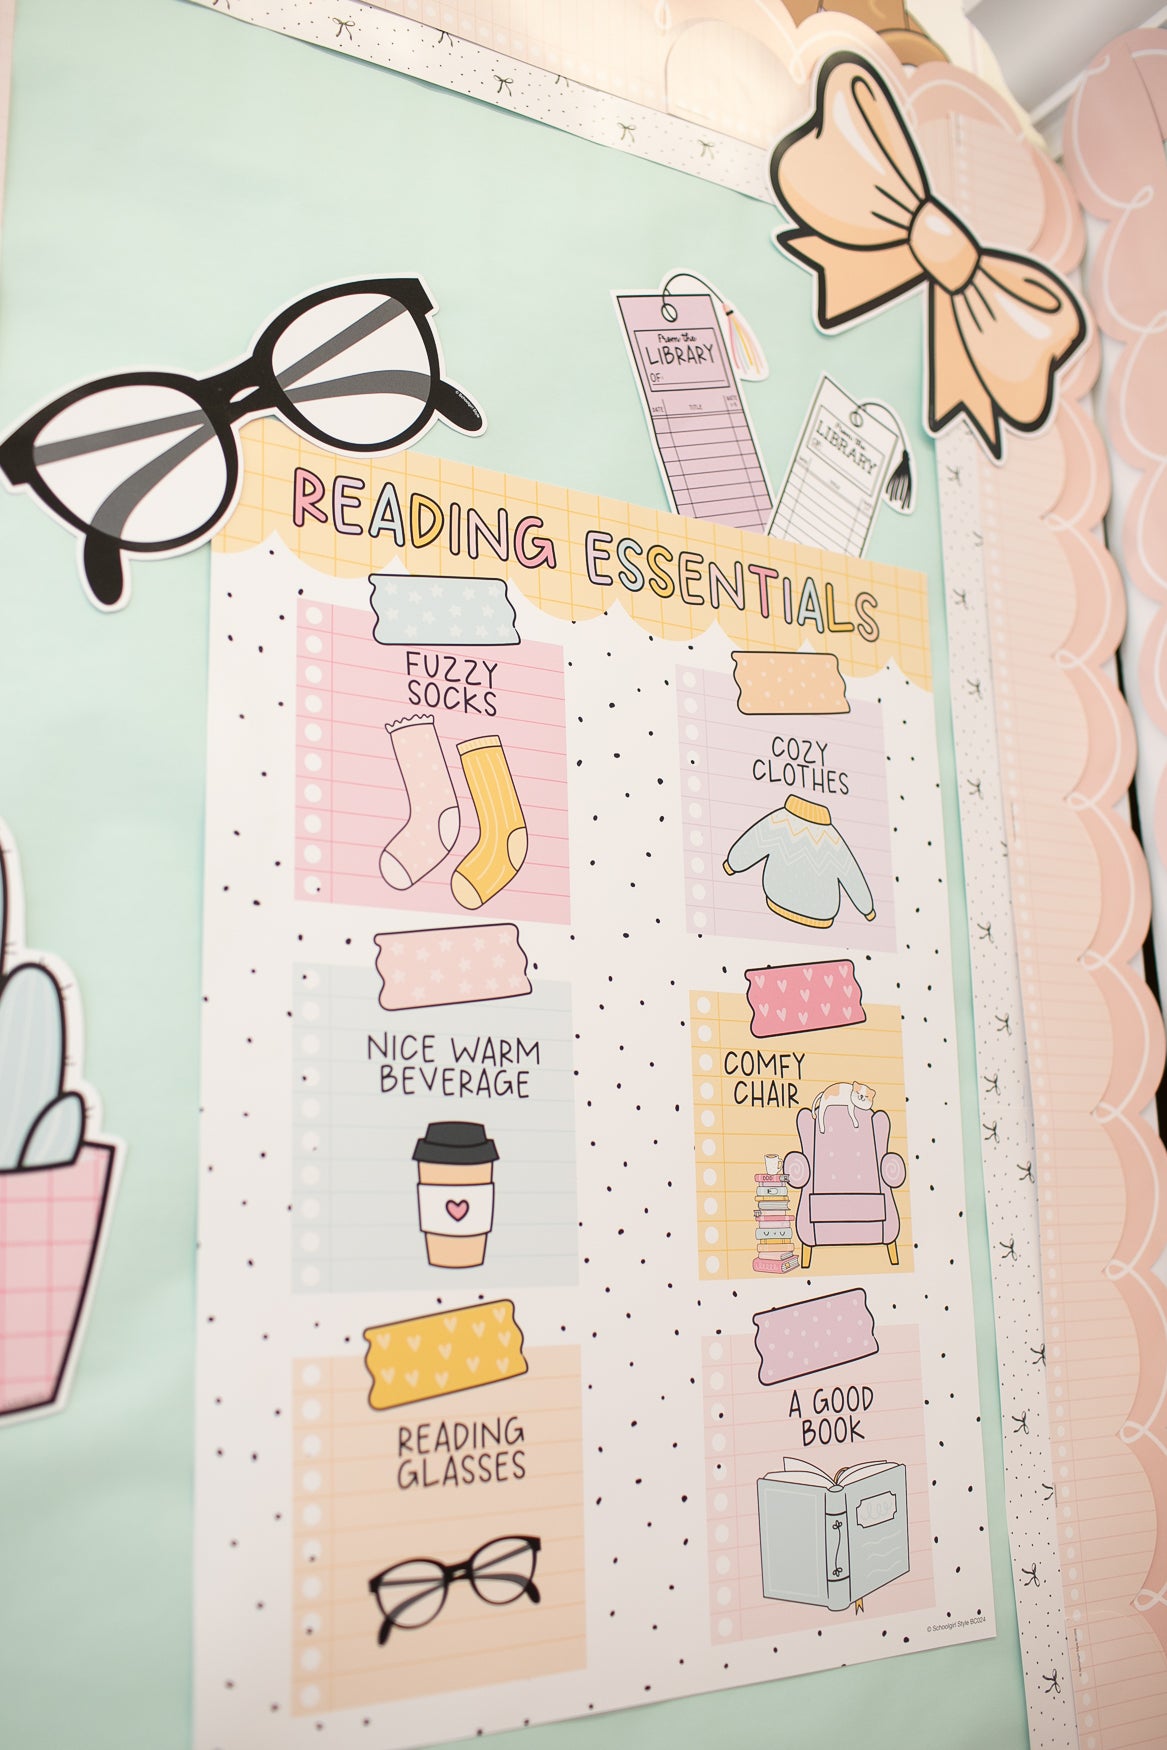 From the
LIBRARY
OF:
DATE
TITLE
From the
LIBRARY
READING ESSENTIALS
FUZZY
SOCKS
COZY
CLOTHES
NICE WARM
BEVERAGE
COMFY
CHAIR
READING
GLASSES
A GOOD
BOOK
© Schoolgirl Style BC024